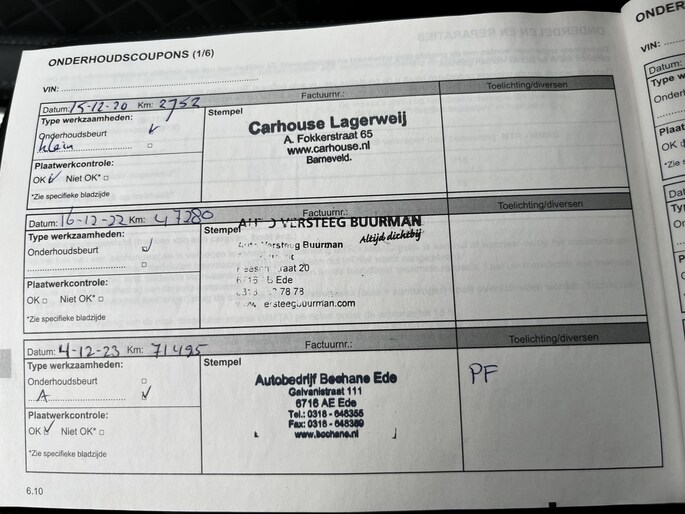 ONDERHOUDSCOUPONS (1/6)
VIN:
Datum: 15-12-20 Km: 2752 Factuurnr.: Toelichting/diversen
Type werkzaamheden:
Onderhoudsbeurt
klein
Plaatwerkcontrole:
OK Niet OK*
*Zie specifieke bladzijde
Stempel
Carhouse Lagerweij
A. Fokkerstraat 65
www.carhouse.nl
Barneveld.
Datum: 16-12-22 Km: 47280 Factuurnr.: Toelichting/diversen
Type werkzaamheden:
Onderhoudsbeurt
Plaatwerkcontrole:
OK Niet OK*
*Zie specifieke bladzijde
Stempel
VERSTEEG BUURMAN
Altijd dichtbij
Versteeg Buurman
20
Ede
78 78
ersteegbuurman.com
Datum: 4-12-23 Km: 71495 Factuurnr.: Toelichting/diversen
Type werkzaamheden:
Onderhoudsbeurt
A
Plaatwerkcontrole:
OK Niet OK*
*Zie specifieke bladzijde
Stempel
Autobedrijf Bochane Ede
Galvanistraat 111
6716 AE Ede
Tel.: 0318 - 648355
Fax: 0318 - 648389
www.bochane.nl
PF
6.10
ONDER
VIN:
Datum:
Type
Onderh
Plaatw
OK
*Zie sp
Datum
Type
Onder
Plaat
OK
*Zie
Dat
Typ
On
Pl
O